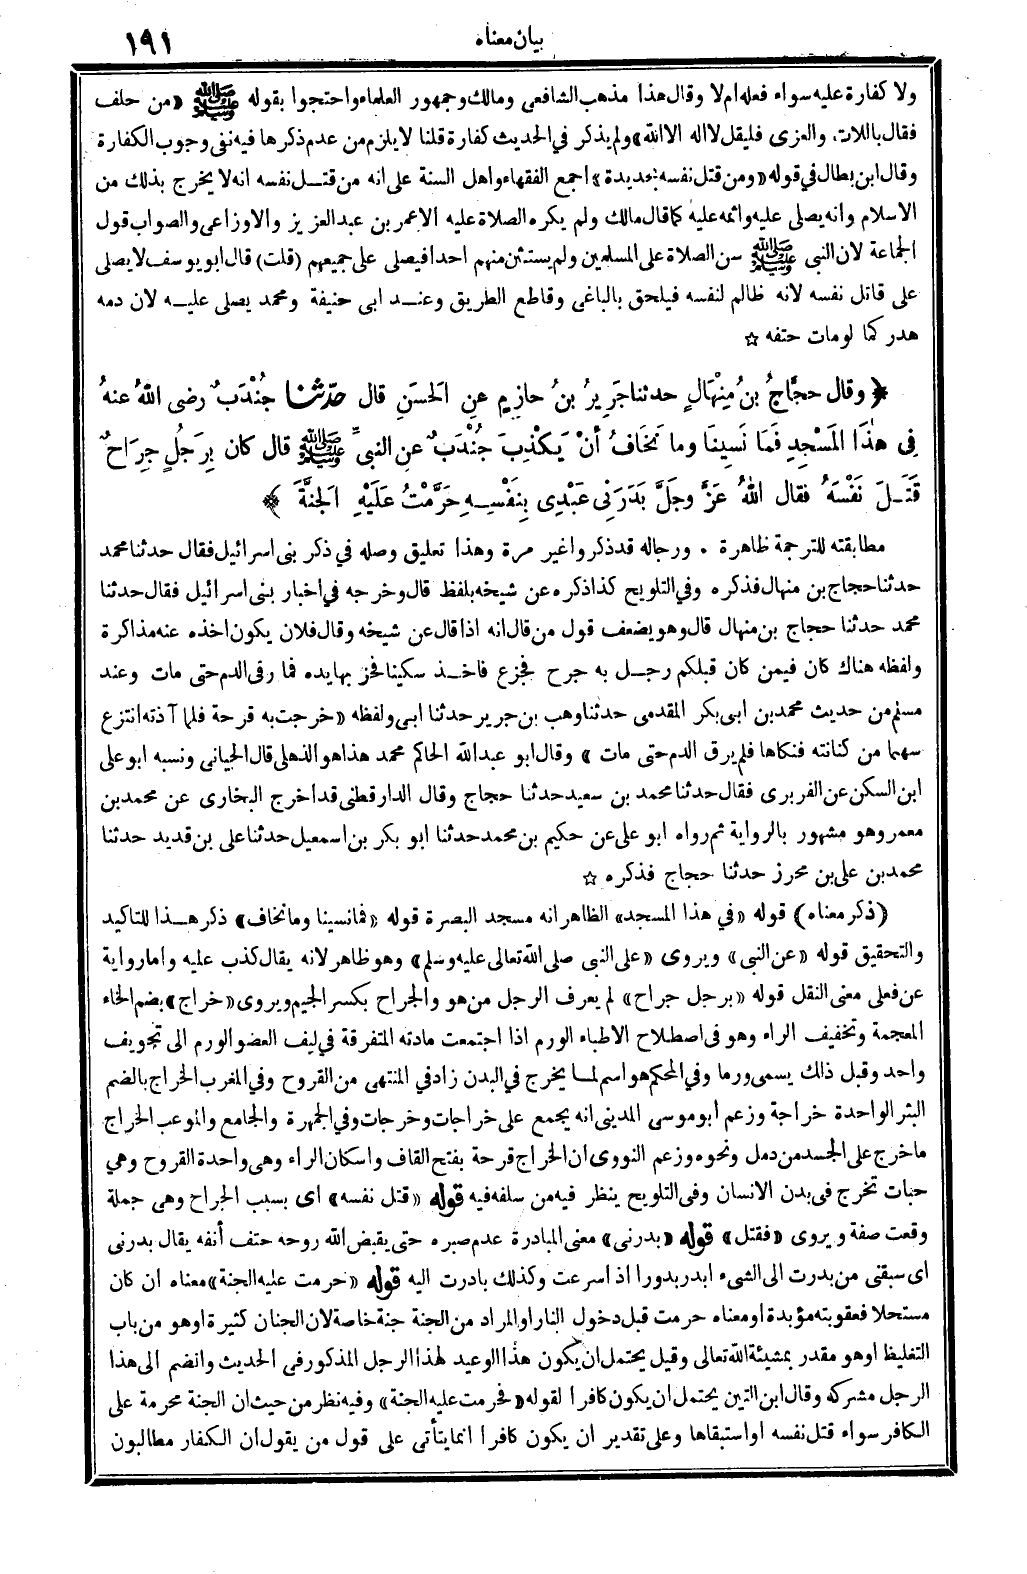 بيان معناه
١٩١
ولا كفارة عليه سواء فعله ام لا وقال هذا مذهب الشافعي ومالك وجمهور العلماء واحتجوا بقوله ﷺ «من حلف
فقال باللات والعزى فليقل لا اله الا الله» ولم يذكر في الحديث كفارة قلنا لا يلزم من عدم ذكرها فيه نفي وجوب الكفارة
وقال ابن بطال في قوله «ومن قتل نفسه بحديدة» اجمع الفقهاء واهل السنة على انه من قتل نفسه انه لا يخرج بذلك من
الاسلام وانه يصلى عليه واثمه عليه كما قال مالك ولم يكره الصلاة عليه الا عمر بن عبد العزيز والاوزاعى والصواب قول
الجماعة لان النبى ﷺ سن الصلاة على المسلمين ولم يستثن منهم احدا فيصلى على جميعهم (قلت) قال ابو يوسف لا يصلى
على قاتل نفسه لانه ظالم لنفسه فيلحق بالباغى وقاطع الطريق وعند ابى حنيفة ومحمد يصلى عليه لان دمه
هدر كما لو مات حتفه ☆
﴿ وقال حجَّاجُ بنُ مِنْهَالٍ حدثنا جَرِيرُ بنُ حازِمٍ عنِ الحَسَنِ قال حدّثنا جُنْدَبٌ رضى اللهُ عنهُ
فِى هٰذَا المَسْجِدِ فَمَا نَسِينَا وما نَخَافُ أنْ يَكْذِبَ جُنْدَبٌ عنِ النبىِّ ﷺ قال كان بِرَجُلٍ جِرَاحٌ
قَتَلَ نَفْسَهُ فقال اللهُ عَزَّ وجلَّ بَدَرَنِى عَبْدِى بِنَفْسِهِ حَرَّمْتُ عَلَيْهِ الجَنَّةَ ﴾
مطابقته للترجمة ظاهرة . ورجاله قد ذكروا غير مرة وهذا تعليق وصله في ذكر بنى اسرائيل فقال حدثنا محمد
حدثنا حجاج بن منهال فذكره وفي التلويح كذا ذكره عن شيخه بلفظ قال وخرجه في اخبار بنى اسرائيل فقال حدثنا
محمد حدثنا حجاج بن منهال قال وهو يضعف قول من قال انه اذا قال عن شيخه وقال فلان يكون اخذه عنه مذاكرة
ولفظه هناك كان فيمن كان قبلكم رجل به جرح فجزع فاخذ سكينا فحز بها يده فما رقى الدم حتى مات وعند
مسلم من حديث محمد بن ابى بكر المقدمى حدثنا وهب بن جرير حدثنا ابى ولفظه «خرجت به قرحة فلما آذته انتزع
سهما من كنانته فنكاها فلم يرق الدم حتى مات» وقال ابو عبد الله الحاكم محمد هذا هو الذهلى قال الجيانى ونسبه ابو على
ابن السكن عن الفربرى فقال حدثنا محمد بن سعيد حدثنا حجاج وقال الدارقطنى قد اخرج البخارى عن محمد بن
معمر وهو مشهور بالرواية ثم رواه ابو على عن حكيم بن محمد حدثنا ابو بكر بن اسمعيل حدثنا على بن قديد حدثنا
محمد بن على بن محرز حدثنا حجاج فذكره ☆
(ذكر معناه) قوله «في هذا المسجد» الظاهر انه مسجد البصرة قوله «فما نسينا وما نخاف» ذكر هذا للتاكيد
والتحقيق قوله «عن النبى» ويروى «على النبى صلى الله تعالى عليه وسلم» وهو ظاهر لانه يقال كذب عليه واما رواية
عن فعلى معنى النقل قوله «برجل جراح» لم يعرف الرجل من هو والجراح بكسر الجيم ويروى «خراج» بضم الخاء
المعجمة وتخفيف الراء وهو فى اصطلاح الاطباء الورم اذا اجتمعت مادته المتفرقة في ليف العضو الورم الى تجويف
واحد وقبل ذالك يسمى ورما وفي المحكم هو اسم لما يخرج في البدن زاد في المنتهى من القروح وفي المغرب الخراج بالضم
البثر الواحدة خراجة وزعم ابو موسى المدينى انه يجمع على خراجات وخرجات وفي الجمهرة والجامع والموعب الخراج
ما خرج على الجسد من دمل ونحوه وزعم النووى ان الخراج قرحة بفتح القاف واسكان الراء وهى واحدة القروح وهي
حبات تخرج فى بدن الانسان وفى التلويح ينظر فيه من سلفه فيه قوله «قتل نفسه» اى بسبب الجراح وهى جملة
وقعت صفة ويروى «فقتل» قوله «بدرنى» معنى المبادرة عدم صبره حتى يقبض الله روحه حتف أنفه يقال بدرنى
اى سبقنى من بدرت الى الشىء ابدر بدورا اذ اسرعت وكذلك بادرت اليه قوله «حرمت عليه الجنة» معناه ان كان
مستحلا فعقوبته مؤبدة او معناه حرمت قبل دخول النار او المراد من الجنة جنة خاصة لان الجنان كثيرة اوهو من باب
التغليظ اوهو مقدر بمشيئة الله تعالى وقيل يحتمل ان يكون هذا الوعيد لهذا الرجل المذكور فى الحديث وانضم الى هذا
الرجل مشركه وقال ابن التين يحتمل ان يكون كافرا لقوله «فحرمت عليه الجنة» وفيه نظر من حيث ان الجنة محرمة على
الكافر سواء قتل نفسه او استبقاها وعلى تقدير ان يكون كافرا انما يتأتى على قول من يقول ان الكفار مطالبون